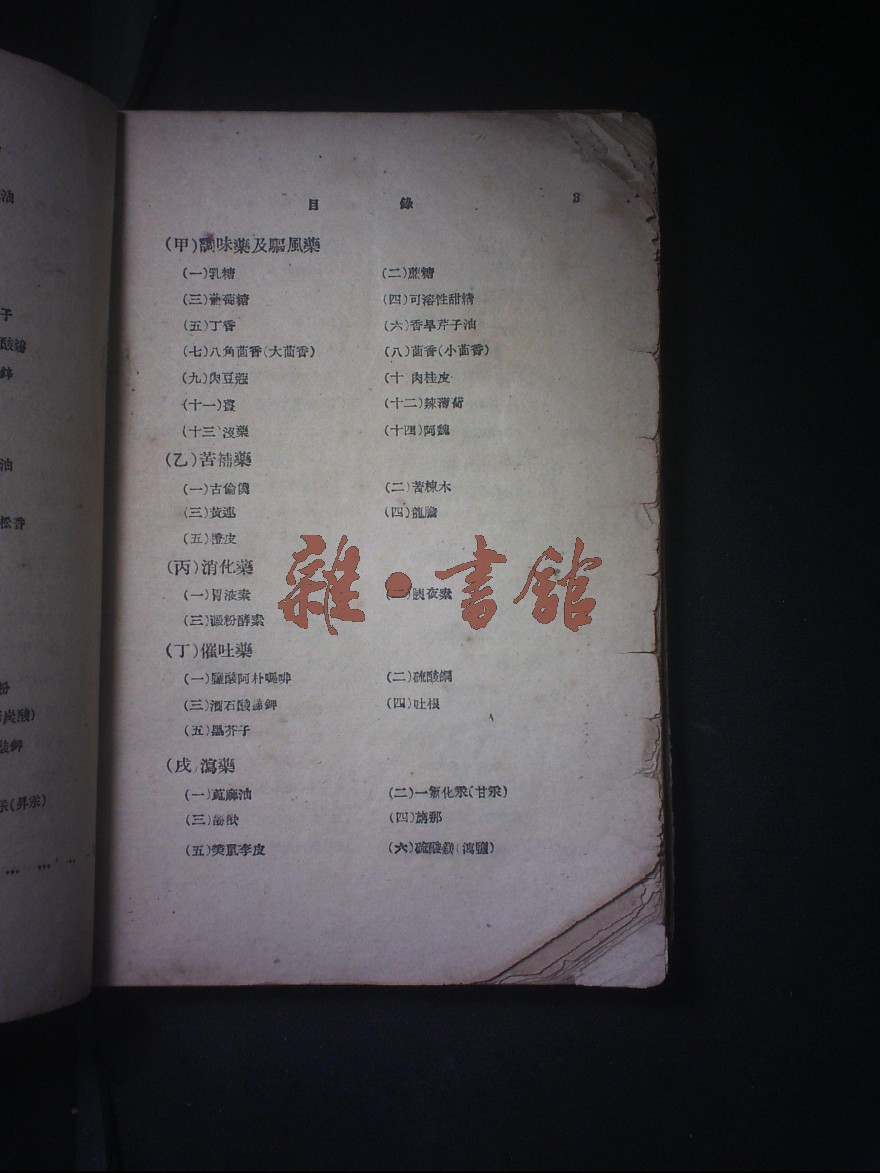 目 錄 3
(甲)調味藥及驅風藥
(一)乳糖 (二)蔗糖
(三)葡萄糖 (四)可溶性甜精
(五)丁香 (六)香旱芹子油
(七)八角茴香(大茴香) (八)茴香(小茴香)
(九)肉豆蔻 (十 肉桂皮
(十一)薑 (十二)辣薄荷
(十三 沒藥 (十四)阿魏
(乙)苦補藥
(一)古倫僕 (二)苦楝木
(三)黃連 (四)龍膽
(五)橙皮
(丙)消化藥
(一)胃液素 (二)胰液素
(三)澱粉酵素
(丁)催吐藥
(一)鹽酸阿朴嗎啡 (二)硫酸銅
(三)酒石酸銻鉀 (四)吐根
(五)黑芥子
(戌 瀉藥
(一)蓖麻油 (二)一氯化汞(甘汞)
(三)酚酞 (四)旃那
(五)美鼠李皮 (六)硫酸鎂(瀉鹽)
雜·書館
油
子
油
松香
粉
炭酸)
酸鉀
汞(昇汞)